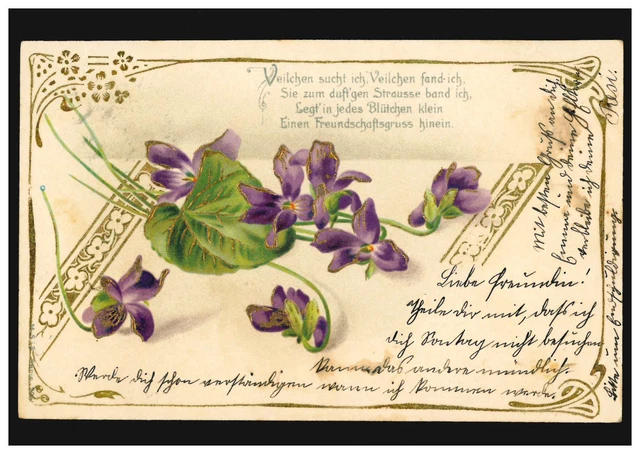 Veilchen sucht ich, Veilchen fand ich,
Sie zum duft'gen Strausse band ich,
Legt' in jedes Blütchen klein
Einen Freundschaftsgruss hinein.
Liebe Freundin!
Theile dir mit, dass ich
dich Sontag nicht besuchen
kann, das andere mündlich.
Werde dich schon verständigen wann ich kommen werde.
Mit besten Gruss an die
und deine
verbleibe ich deine
Bitte um Entschuldigung